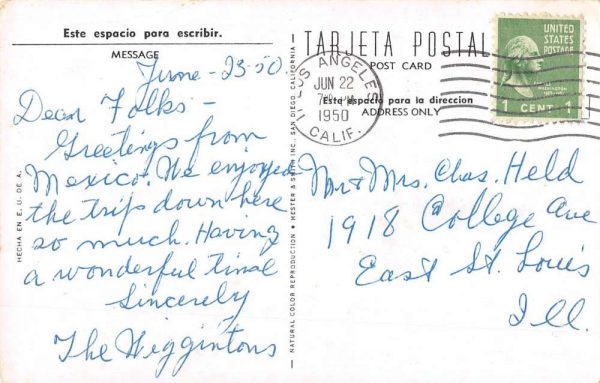 Este espacio para escribir.
MESSAGE
June - 23-50
Dear Folks -
Greetings from
Mexico. We enjoyed
the trip down here
so much. Having
a wonderful time
Sincerely
The Wiggintons
HECHO EN E. U. DE A.
NATURAL COLOR REPRODUCTION • KESTER & SMITH INC. SAN DIEGO, CALIFORNIA
TARJETA POSTAL
POST CARD
Este espacio para la direccion
ADDRESS ONLY
LOS ANGELES
JUN 22
1950
CALIF.
UNITED
STATES
POSTAGE
WASHINGTON
1 CENT 1
Mr & Mrs. Chas. Held
1918 College Ave
East St. Louis
Ill.